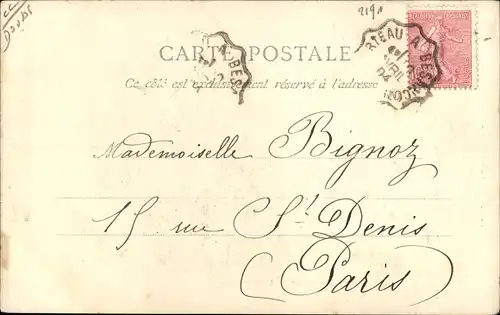 Doubs
219
CARTE POSTALE
Ce côté est exclusivement réservé à l'adresse
RTEAU A BESANÇON
AVRIL
04
A BES
Mademoiselle Bignoz
15 rue St. Denis
(Paris)